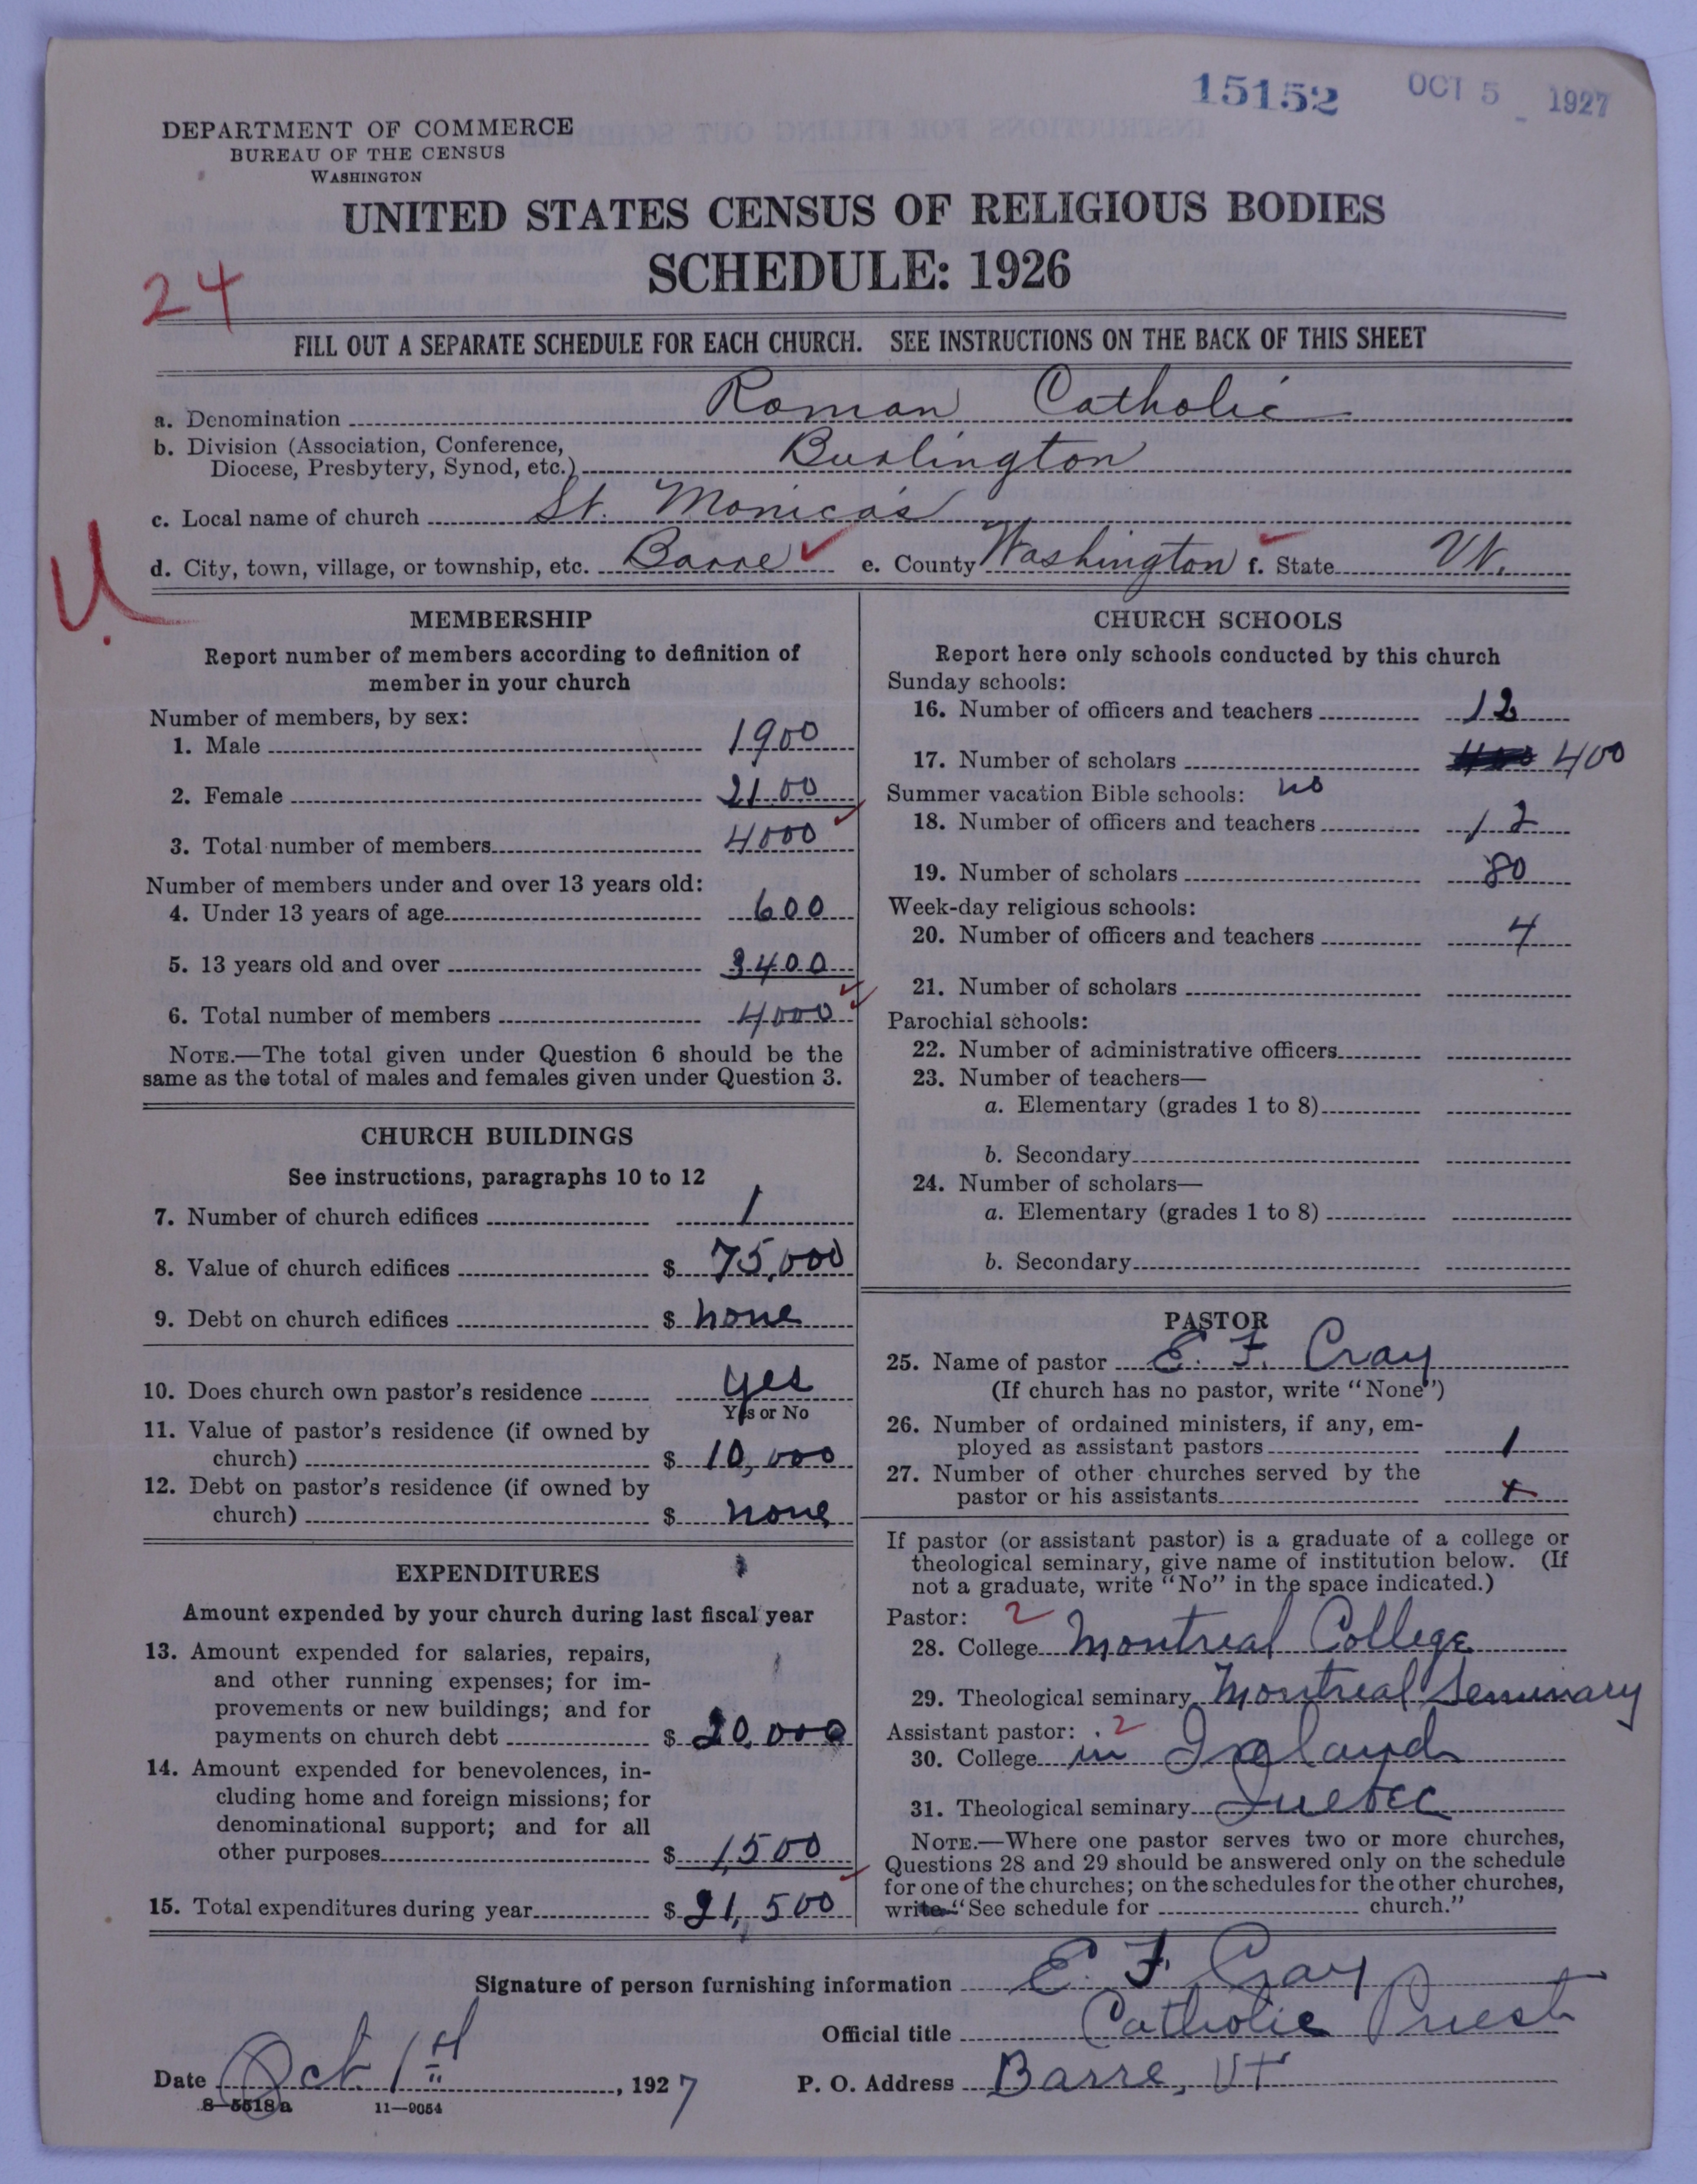 15152 OCT 5 1927
DEPARTMENT OF COMMERCE
BUREAU OF THE CENSUS
WASHINGTON
UNITED STATES CENSUS OF RELIGIOUS BODIES
SCHEDULE: 1926
24
FILL OUT A SEPARATE SCHEDULE FOR EACH CHURCH. SEE INSTRUCTIONS ON THE BACK OF THIS SHEET
a. Denomination Roman Catholic
b. Division (Association, Conference,
Diocese, Presbytery, Synod, etc.) Burlington
c. Local name of church St. Monica's
d. City, town, village, or township, etc. Barre e. County Washington f. State Vt.
U.
MEMBERSHIP
Report number of members according to definition of
member in your church
Number of members, by sex:
1. Male 1900
2. Female 2100
3. Total number of members 4000
Number of members under and over 13 years old:
4. Under 13 years of age 600
5. 13 years old and over 3400
6. Total number of members 4000
NOTE.—The total given under Question 6 should be the
same as the total of males and females given under Question 3.
CHURCH BUILDINGS
See instructions, paragraphs 10 to 12
7. Number of church edifices 1
8. Value of church edifices $ 75,000
9. Debt on church edifices $ none
10. Does church own pastor's residence yes
Yes or No
11. Value of pastor's residence (if owned by
church) $ 10,000
12. Debt on pastor's residence (if owned by
church) $ none
EXPENDITURES
Amount expended by your church during last fiscal year
13. Amount expended for salaries, repairs,
and other running expenses; for im-
provements or new buildings; and for
payments on church debt $ 20,000
14. Amount expended for benevolences, in-
cluding home and foreign missions; for
denominational support; and for all
other purposes $ 1,500
15. Total expenditures during year $ 21,500
CHURCH SCHOOLS
Report here only schools conducted by this church
Sunday schools:
16. Number of officers and teachers 12
17. Number of scholars 400
Summer vacation Bible schools: no
18. Number of officers and teachers 12
19. Number of scholars 80
Week-day religious schools:
20. Number of officers and teachers 4
21. Number of scholars
Parochial schools:
22. Number of administrative officers
23. Number of teachers—
a. Elementary (grades 1 to 8)
b. Secondary
24. Number of scholars—
a. Elementary (grades 1 to 8)
b. Secondary
PASTOR
25. Name of pastor E. F. Cray
(If church has no pastor, write "None")
26. Number of ordained ministers, if any, em-
ployed as assistant pastors 1
27. Number of other churches served by the
pastor or his assistants x
If pastor (or assistant pastor) is a graduate of a college or
theological seminary, give name of institution below. (If
not a graduate, write "No" in the space indicated.)
Pastor: 2
28. College Montreal College
29. Theological seminary Montreal Seminary
Assistant pastor: 2
30. College in Ireland
31. Theological seminary Quebec
NOTE.—Where one pastor serves two or more churches,
Questions 28 and 29 should be answered only on the schedule
for one of the churches; on the schedules for the other churches,
write "See schedule for church."
Signature of person furnishing information E. F. Cray
Official title Catholic Priest
Date Oct. 1st, 1927 P. O. Address Barre, Vt
8—5518a 11—9054